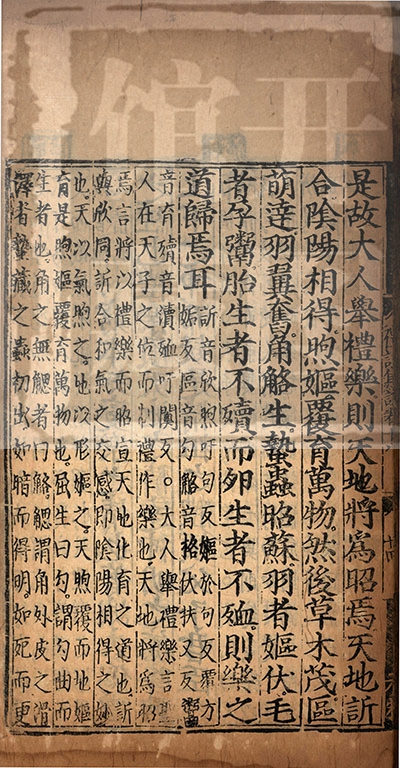 是故大人舉禮樂則天地將爲昭焉天地訢
合陰陽相得煦嫗覆育萬物然後草木茂區
萌達羽翼奮角觡生蟄蟲昭蘇羽者嫗伏毛
者孕鬻胎生者不殰而卵生者不殈則樂之
道歸焉耳
訢音欣煦吁句反嫗於句反覆方
妬反區音勾觡音格伏扶又反鬻
音育殰音瀆殈吁闃反。大人舉禮樂言聖
人在天子之位而制禮作樂也天地將爲昭
焉言將以禮樂而昭宣天地化育之道也訢
與欣同訢合和氣之交感即陰陽相得之妙
也天以氣煦之地以形嫗之天煦覆而地嫗
育是煦嫗覆育萬物也屈生曰勾謂勾曲而
生者也角之無䚡者曰觡䚡謂角外皮之滑
澤者蟄藏之蟲初出如暗而得明如死而更